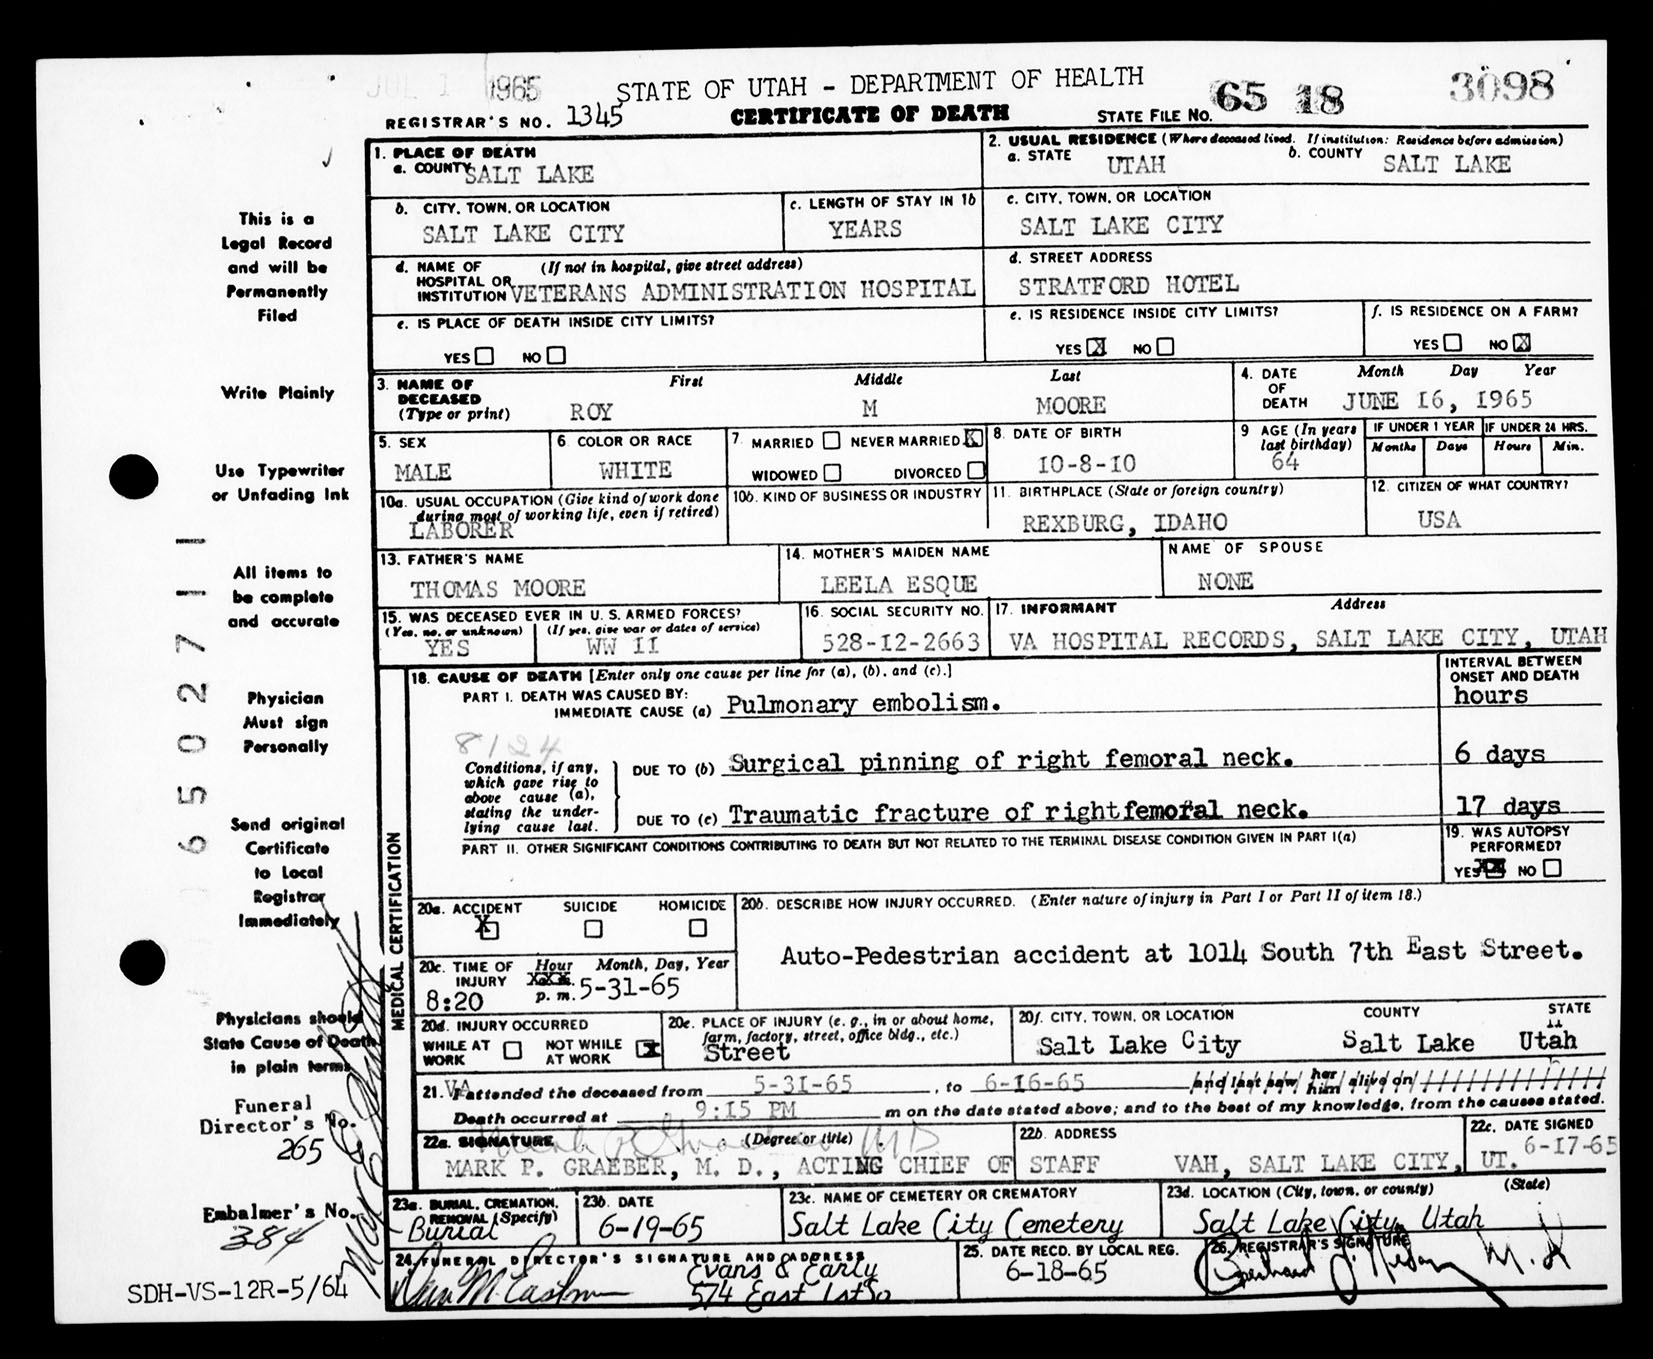 JUL 1 1965
STATE OF UTAH – DEPARTMENT OF HEALTH
REGISTRAR'S NO. 1345 CERTIFICATE OF DEATH STATE FILE NO. 65 18 3098
1. PLACE OF DEATH
a. COUNTY SALT LAKE
2. USUAL RESIDENCE (Where deceased lived. If institution: Residence before admission)
a. STATE UTAH b. COUNTY SALT LAKE
b. CITY, TOWN, OR LOCATION SALT LAKE CITY
c. LENGTH OF STAY IN 1b YEARS
c. CITY, TOWN, OR LOCATION SALT LAKE CITY
d. NAME OF HOSPITAL OR INSTITUTION (If not in hospital, give street address)
VETERANS ADMINISTRATION HOSPITAL
d. STREET ADDRESS STRATFORD HOTEL
e. IS PLACE OF DEATH INSIDE CITY LIMITS?
YES NO
e. IS RESIDENCE INSIDE CITY LIMITS?
YES X NO
f. IS RESIDENCE ON A FARM?
YES NO X
3. NAME OF DECEASED (Type or print)
First Middle Last
ROY M MOORE
4. DATE OF DEATH Month Day Year
JUNE 16, 1965
5. SEX MALE
6. COLOR OR RACE WHITE
7. MARRIED NEVER MARRIED X
WIDOWED DIVORCED
8. DATE OF BIRTH 10-8-10
9 AGE (In years last birthday) 64
IF UNDER 1 YEAR Months Days
IF UNDER 24 HRS. Hours Min.
10a. USUAL OCCUPATION (Give kind of work done during most of working life, even if retired)
LABORER
10b. KIND OF BUSINESS OR INDUSTRY
11. BIRTHPLACE (State or foreign country)
REXBURG, IDAHO
12. CITIZEN OF WHAT COUNTRY?
USA
13. FATHER'S NAME
THOMAS MOORE
14. MOTHER'S MAIDEN NAME
LEELA ESQUE
NAME OF SPOUSE
NONE
15. WAS DECEASED EVER IN U. S. ARMED FORCES?
(Yes, no, or unknown) (If yes, give war or dates of service)
YES WW II
16. SOCIAL SECURITY NO.
528-12-2663
17. INFORMANT Address
VA HOSPITAL RECORDS, SALT LAKE CITY, UTAH
MEDICAL CERTIFICATION
18. CAUSE OF DEATH [Enter only one cause per line for (a), (b), and (c).]
INTERVAL BETWEEN ONSET AND DEATH
PART I. DEATH WAS CAUSED BY:
IMMEDIATE CAUSE (a) Pulmonary embolism. hours
8124
Conditions, if any, which gave rise to above cause (a), stating the underlying cause last.
DUE TO (b) Surgical pinning of right femoral neck. 6 days
DUE TO (c) Traumatic fracture of right femoral neck. 17 days
PART II. OTHER SIGNIFICANT CONDITIONS CONTRIBUTING TO DEATH BUT NOT RELATED TO THE TERMINAL DISEASE CONDITION GIVEN IN PART I(a)
19. WAS AUTOPSY PERFORMED?
YES XX NO
20a. ACCIDENT SUICIDE HOMICIDE
X
20b. DESCRIBE HOW INJURY OCCURRED. (Enter nature of injury in Part I or Part II of item 18.)
Auto-Pedestrian accident at 1014 South 7th East Street.
20c. TIME OF INJURY Hour Month, Day, Year
8:20 p. m. 5-31-65
20d. INJURY OCCURRED
WHILE AT WORK NOT WHILE AT WORK X
20e. PLACE OF INJURY (e. g., in or about home, farm, factory, street, office bldg., etc.)
Street
20f. CITY, TOWN, OR LOCATION COUNTY STATE
Salt Lake City Salt Lake Utah
21. VA attended the deceased from 5-31-65, to 6-16-65 and last saw her him alive on
Death occurred at 9:15 PM m on the date stated above; and to the best of my knowledge, from the causes stated.
22a. SIGNATURE (Degree or title) MD
22b. ADDRESS
22c. DATE SIGNED
MARK P. GRAEBER, M. D., ACTING CHIEF OF STAFF VAH, SALT LAKE CITY, UT. 6-17-65
23a. BURIAL, CREMATION, REMOVAL (Specify)
Burial
23b. DATE
6-19-65
23c. NAME OF CEMETERY OR CREMATORY
Salt Lake City Cemetery
23d. LOCATION (City, town, or county) (State)
Salt Lake City, Utah
24. FUNERAL DIRECTOR'S SIGNATURE AND ADDRESS
Evans & Early
574 East 1st So
25. DATE RECD. BY LOCAL REG.
6-18-65
26. REGISTRAR'S SIGNATURE
This is a
Legal Record
and will be
Permanently
Filed
Write Plainly
Use Typewriter
or Unfading Ink
All items to
be complete
and accurate
Physician
Must sign
Personally
Send original
Certificate
to Local
Registrar
Immediately
Physicians should
State Cause of Death
in plain terms
Funeral
Director's No.
265
Embalmer's No.
384
SDH-VS-12R-5/64
65027 11